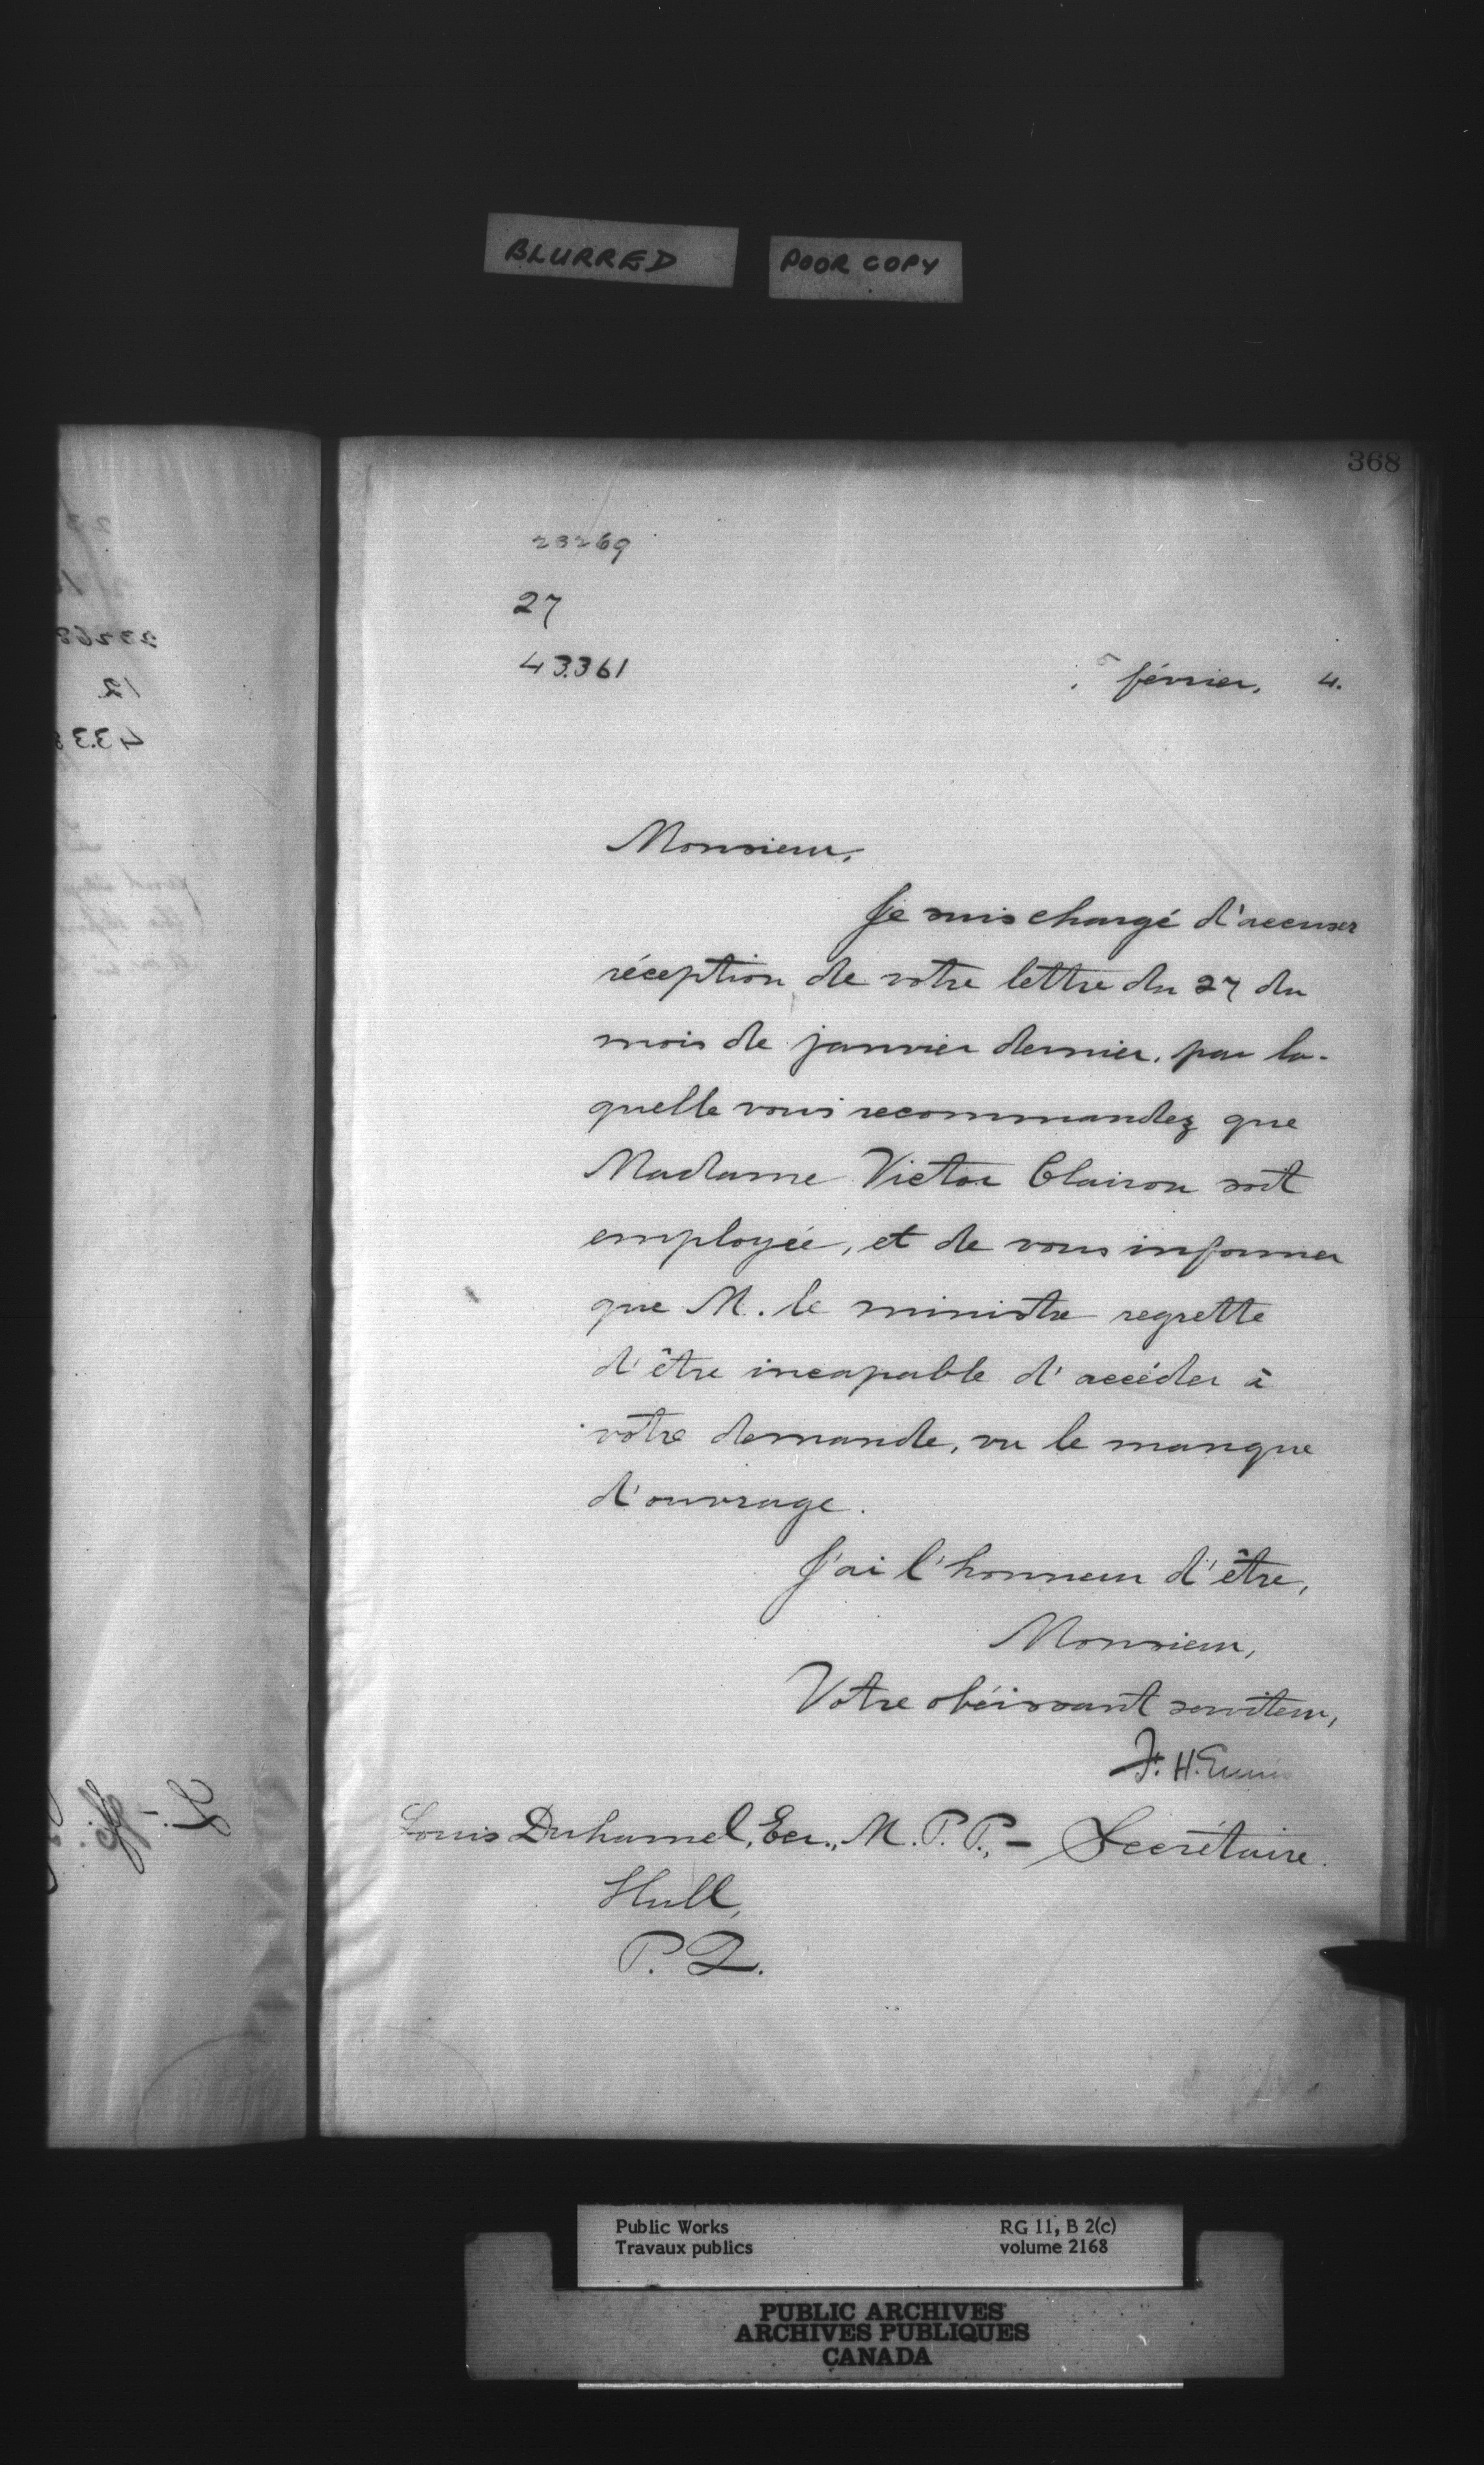 BLURRED
POOR COPY
368
23269
27
43361
5 février, 4.
Monsieur,
Je suis chargé d'accuser
réception de votre lettre du 27 du
mois de janvier dernier, par la-
quelle vous recommandez que
Madame Victor Clairon soit
employée, et de vous informer
que M. le ministre regrette
d'être incapable d'accéder à
votre demande, vu le manque
d'ouvrage.
J'ai l'honneur d'être,
Monsieur,
Votre obéissant serviteur,
F. H. Ennis
Secrétaire.
Louis Duhamel, Ecr., M. P. P., -
Hull,
P. Q.
Public Works
Travaux publics
RG 11, B 2(c)
volume 2168
PUBLIC ARCHIVES
ARCHIVES PUBLIQUES
CANADA